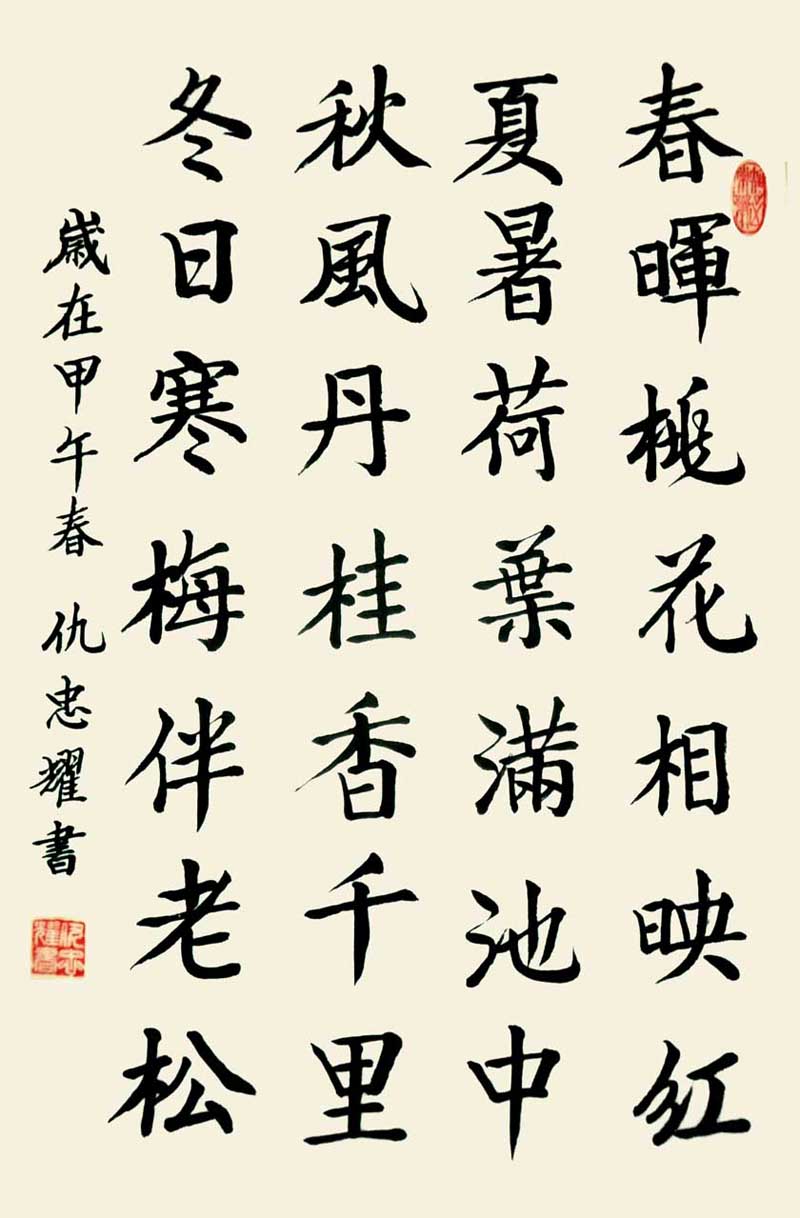 春暉桃花相映红
夏暑荷葉滿池中
秋風丹桂香千里
冬日寒梅伴老松
歲在甲午春 仇忠耀書